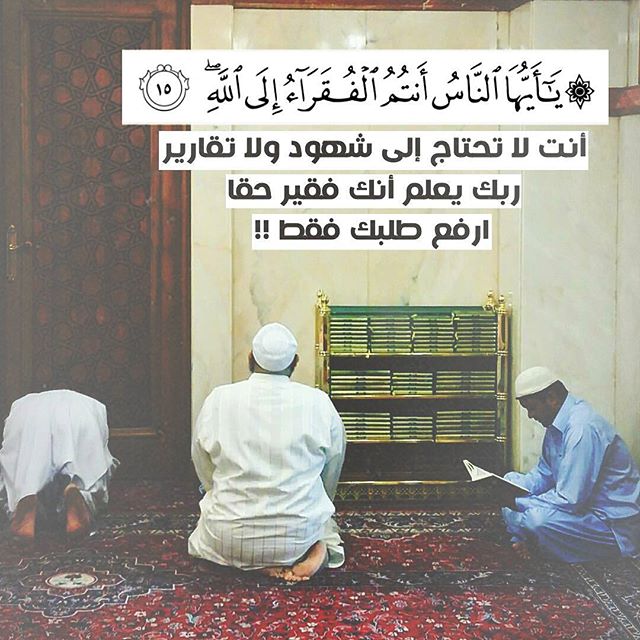 ۞ يَٰٓأَيُّهَا ٱلنَّاسُ أَنتُمُ ٱلۡفُقَرَآءُ إِلَى ٱللَّهِۖ ١٥
أنت لا تحتاج إلى شهود ولا تقارير
ربك يعلم أنك فقير حقا
ارفع طلبك فقط !!